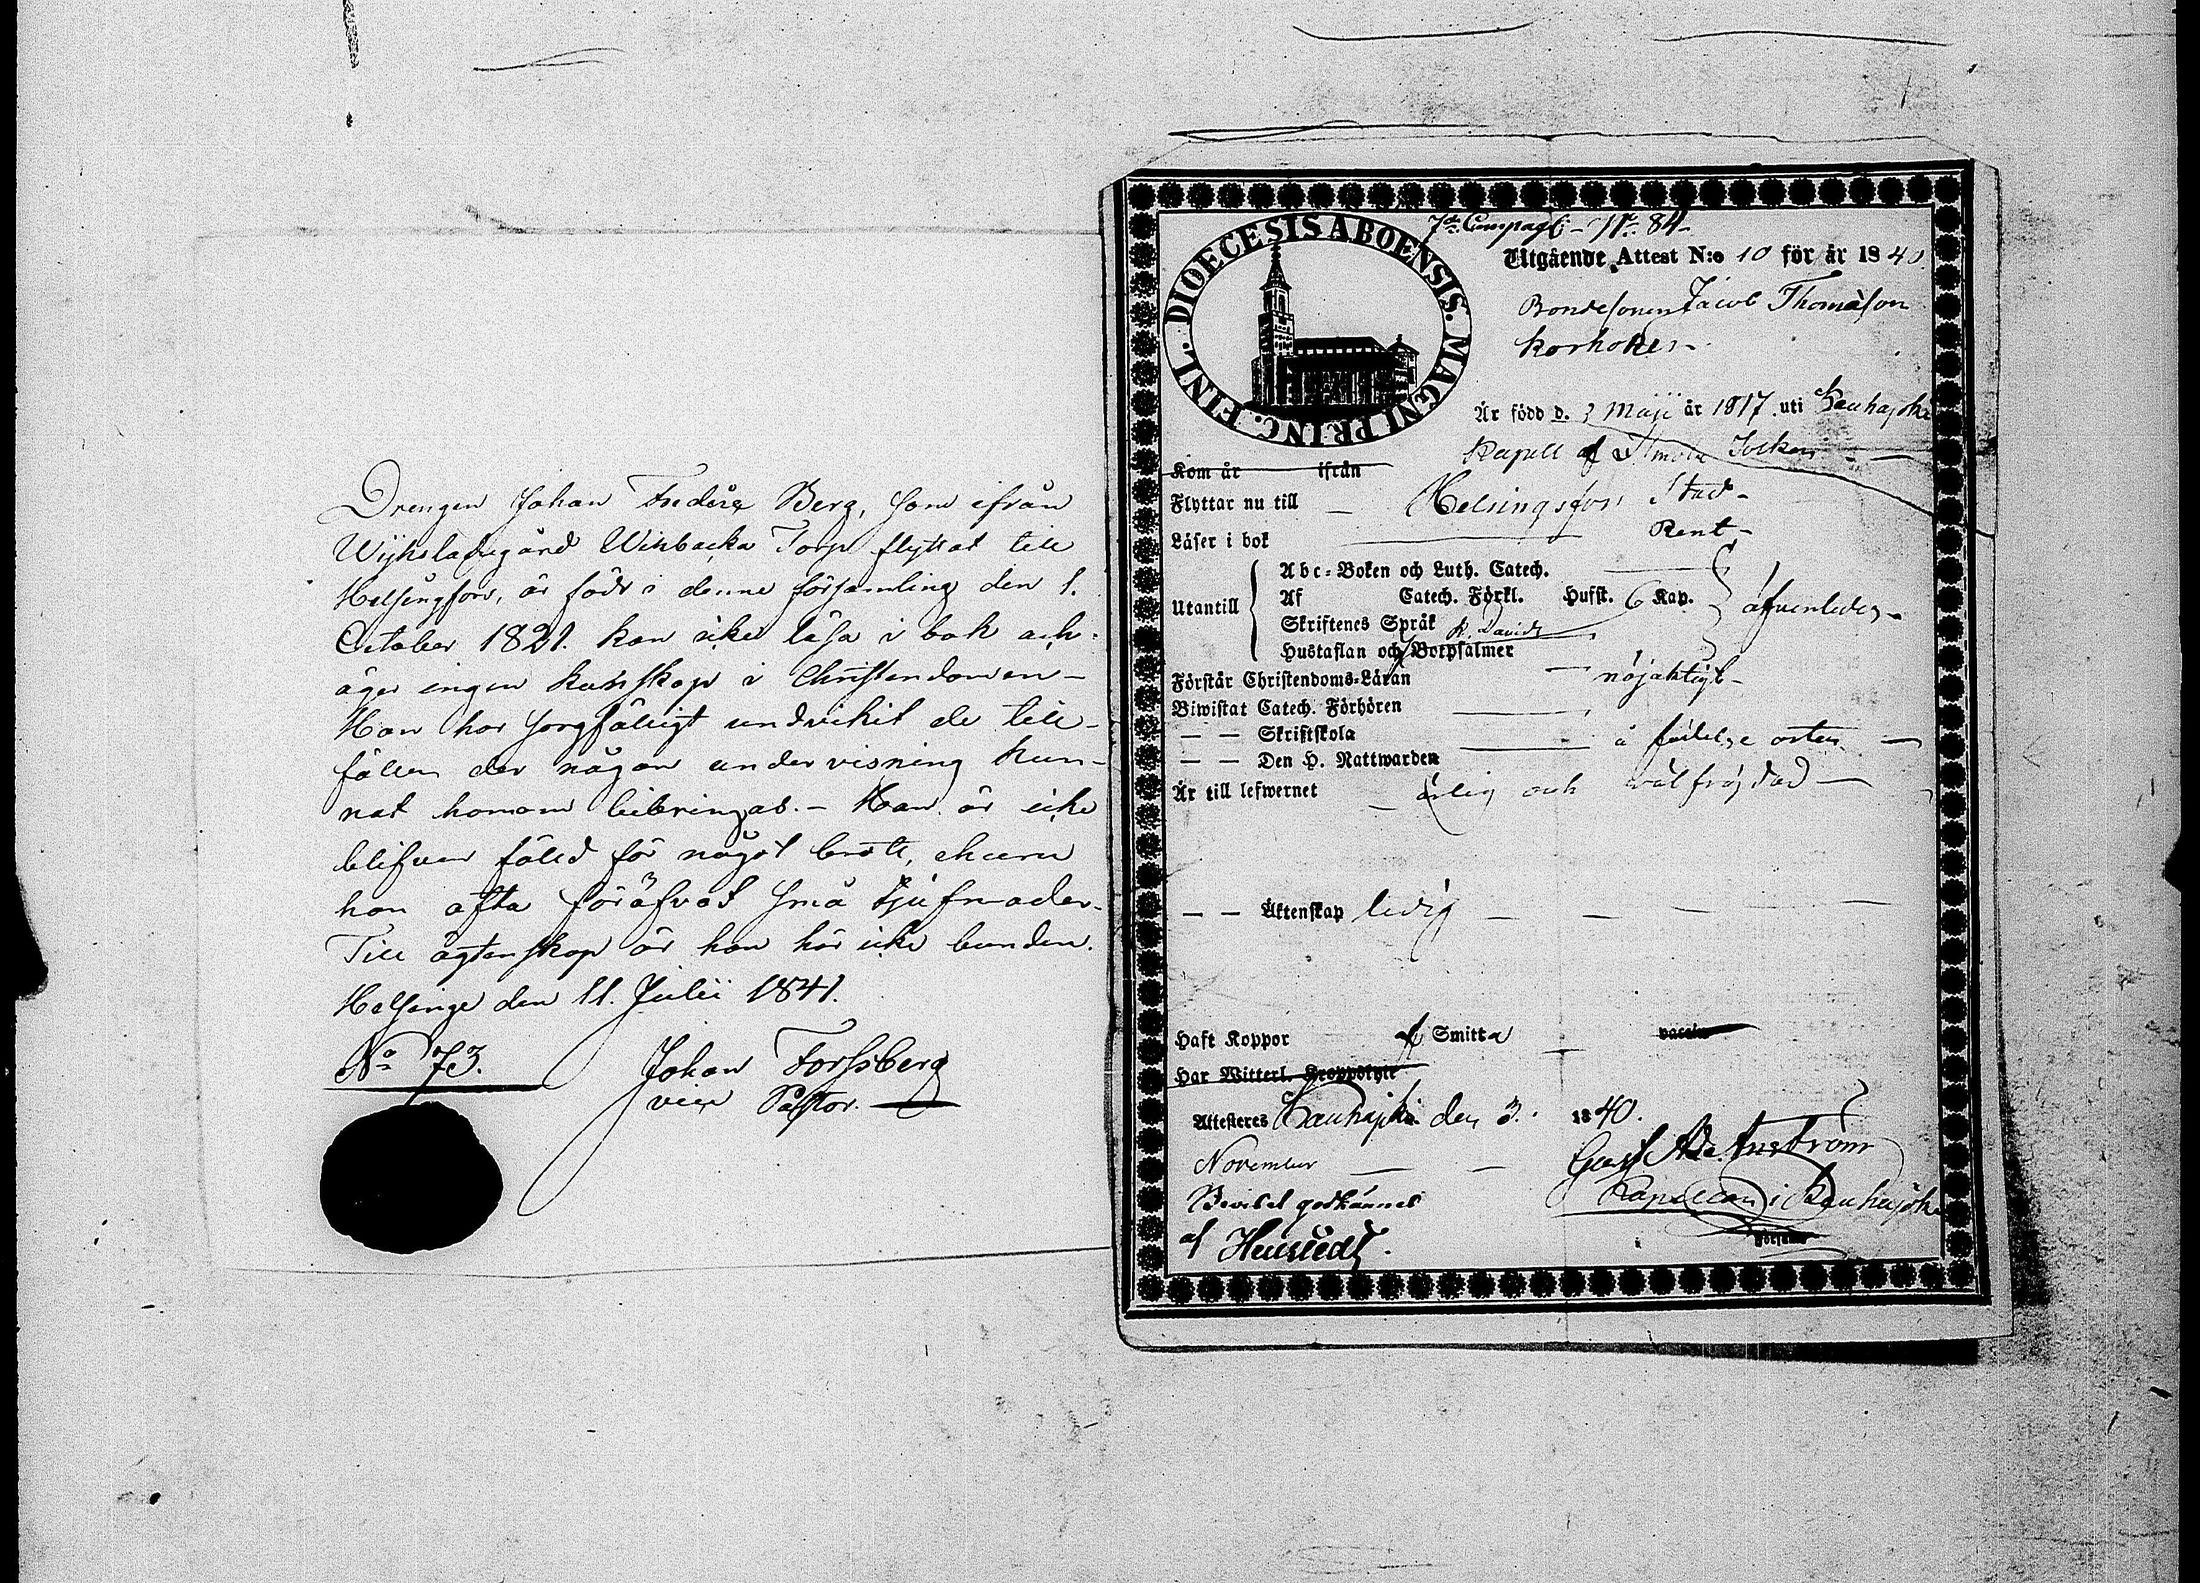 Drengen Johan Fredric Berg, som ifrån
Wijksladugård Wikbacka Torp flyttat till
Helsingfors, är född i denna församling den 1.
October 1821. kan icke läsa i bok och
äger ingen kunskap i Christendomen –
Han har sorgfälligt undvikit de till-
fällen der någon undervisning kun-
nat honom bibringas. – Han är icke
blifven fälld för något brott, churu
han ofta föröfvat små tjufnader.
Till ägtenskap är han här icke bunden.
Helsinge den 11. Julii 1841.
No 73.
Johan Forssberg
vice Pastor.
DIOECESIS ABOENSIS. MAGNI PRINC. FINL.
7de Compagt – No 84 –
Utgående Attest N:o 10 för år 1840.
Bondesonen Jacob Thomasson
Korhoken
Är född d. 3 Maji år 1817. uti Kauhajoki
Kapell af Ilmola Socken
Kom år ifrån
Flyttar nu till Helsingfors Stad –
Läser i bok Rent –
Utantill
Abc-Boken och Luth. Catech.
Af Catech. Förkl. Husst. 6 Kap. äfvenledes –
Skriftenes Språk K. Davids
Hustaflan och Botpsalmer
Förstår Christendoms-Läran nöjaktigt –
Biwistat Catech. Förhören
— — Skriftskola å födelse orten
— — Den H. Nattwarden
Är till lefwernet ärlig och välfrejdad
— — Äktenskap ledig
Haft Koppor af Smitta vaccin
Har Witterl. Kroppslyte
Attesteres Kauhajoki den 3. 1840.
November
Gust. Ad.
Kapellan i Kauhajoki
Beviset godkännes
af